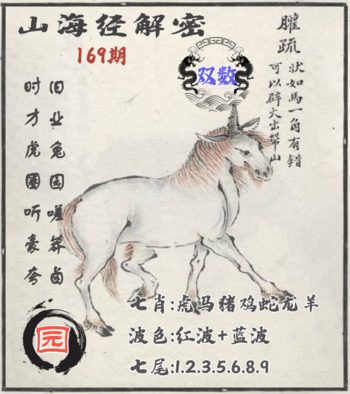 山海经解密
169期
双数
臞疏
状如馬一角有错
可以辟火出带山
旧业兔园嗟莽卤
时才虎圈听豪夸
七肖:虎马猪鸡蛇龙羊
波色:红波+蓝波
七尾:1.2.3.5.6.8.9
元